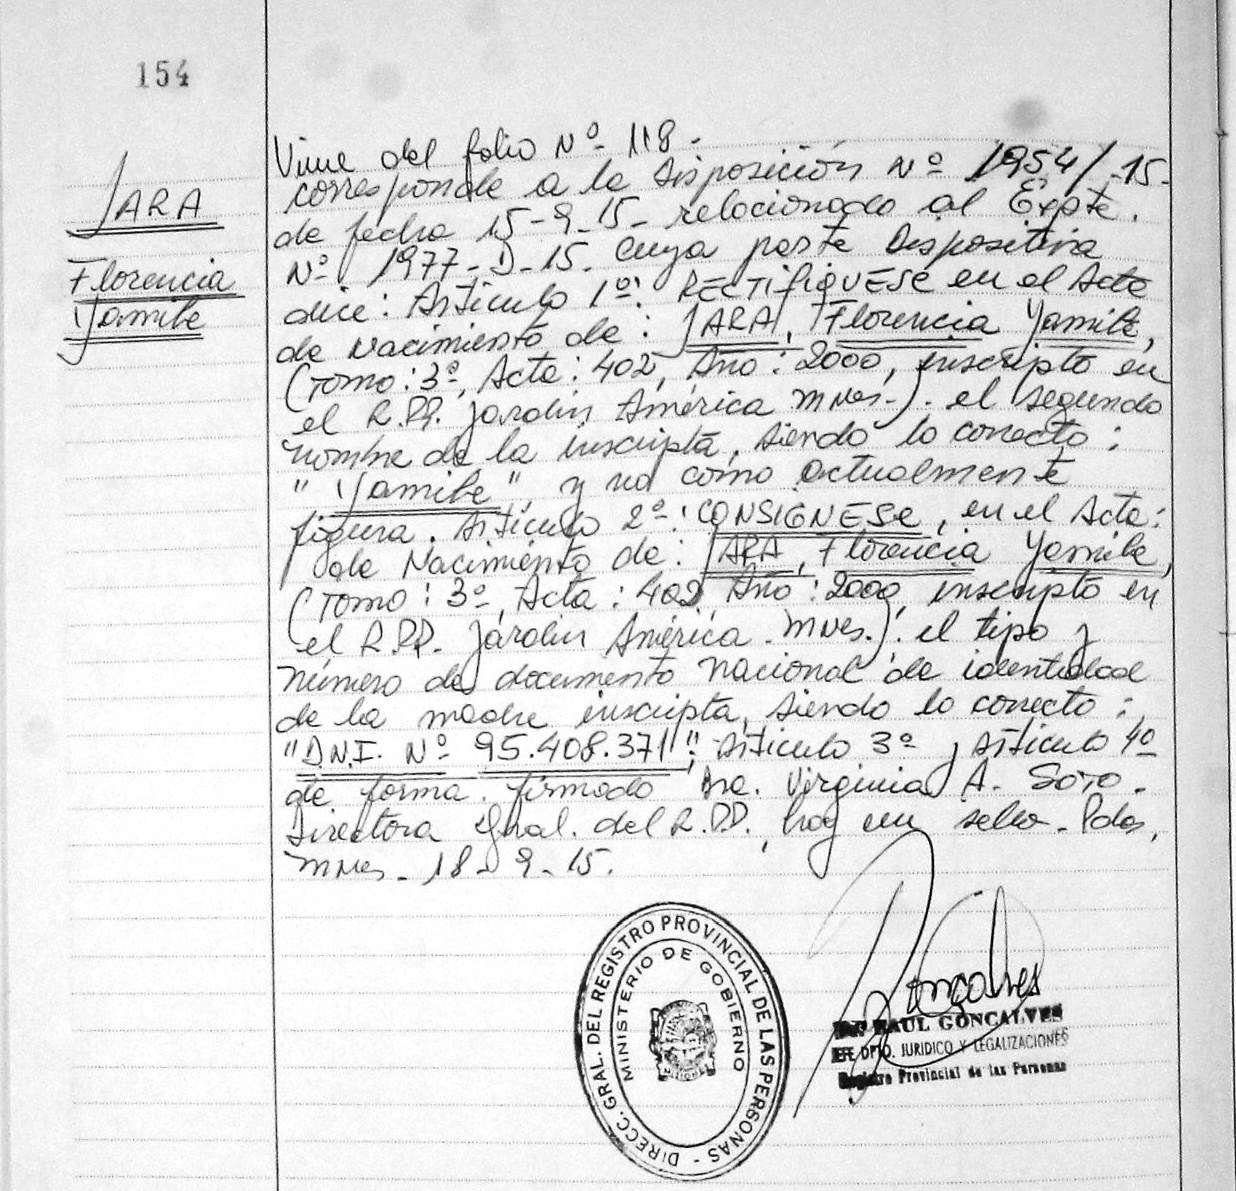 154
JARA
Florencia
Yamile
Viene del folio Nº 118.-
corresponde a la Disposición Nº 1954/-15-
de fecha 15-9-15- relacionado al Expte.
Nº 1977-D-15. cuya parte Dispositiva
dice: Artículo 1º: RECTIFIQUESE en el Acta
de Nacimiento de: JARA, Florencia Yamile,
(Tomo: 3º, Acta: 402, Año: 2000, inscripto en
el R.P.P. Jardín América. Mnes.-). el segundo
nombre de la inscripta, siendo lo correcto:
"Yamile", y no como actualmente
figura. Artículo 2º: CONSIGNESE, en el Acta:
de Nacimiento de: JARA, Florencia Yamile,
(Tomo: 3º, Acta: 402, Año: 2000, inscripto en
el R.P.P. Jardín América. Mnes.). el tipo y
número de documento nacional de identidad
de la madre inscripta, siendo lo correcto:
"D.N.I. Nº 95.408.371". Artículo 3º y Artículo 4º
de forma. firmado Dra. Virginia A. Soto.
Directora Gral. del R.P.P., hay un sello.- Pdas,
Mnes- 18-9-15.
DIRECC. GRAL. DEL REGISTRO PROVINCIAL DE LAS PERSONAS -
MINISTERIO DE GOBIERNO
Goncalves
Dr. RAUL GONCALVES
JEFE DPTO. JURIDICO Y LEGALIZACIONES
Registro Provincial de las Personas